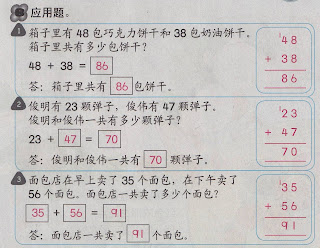 应用题。
1 箱子里有 48 包巧克力饼干和 38 包奶油饼干。
箱子里共有多少包饼干？
48 + 38 = 86
答：箱子里共有 86 包饼干。
1
48
+ 38
86
2 俊明有 23 颗弹子，俊伟有 47 颗弹子。
俊明和俊伟一共有多少颗弹子？
23 + 47 = 70
答：俊明和俊伟一共有 70 颗弹子。
1
23
+ 47
70
3 面包店在早上卖了 35 个面包，在下午卖了
56 个面包。面包店一共卖了多少个面包？
35 + 56 = 91
答：面包店一共卖了 91 个面包。
1
35
+ 56
91